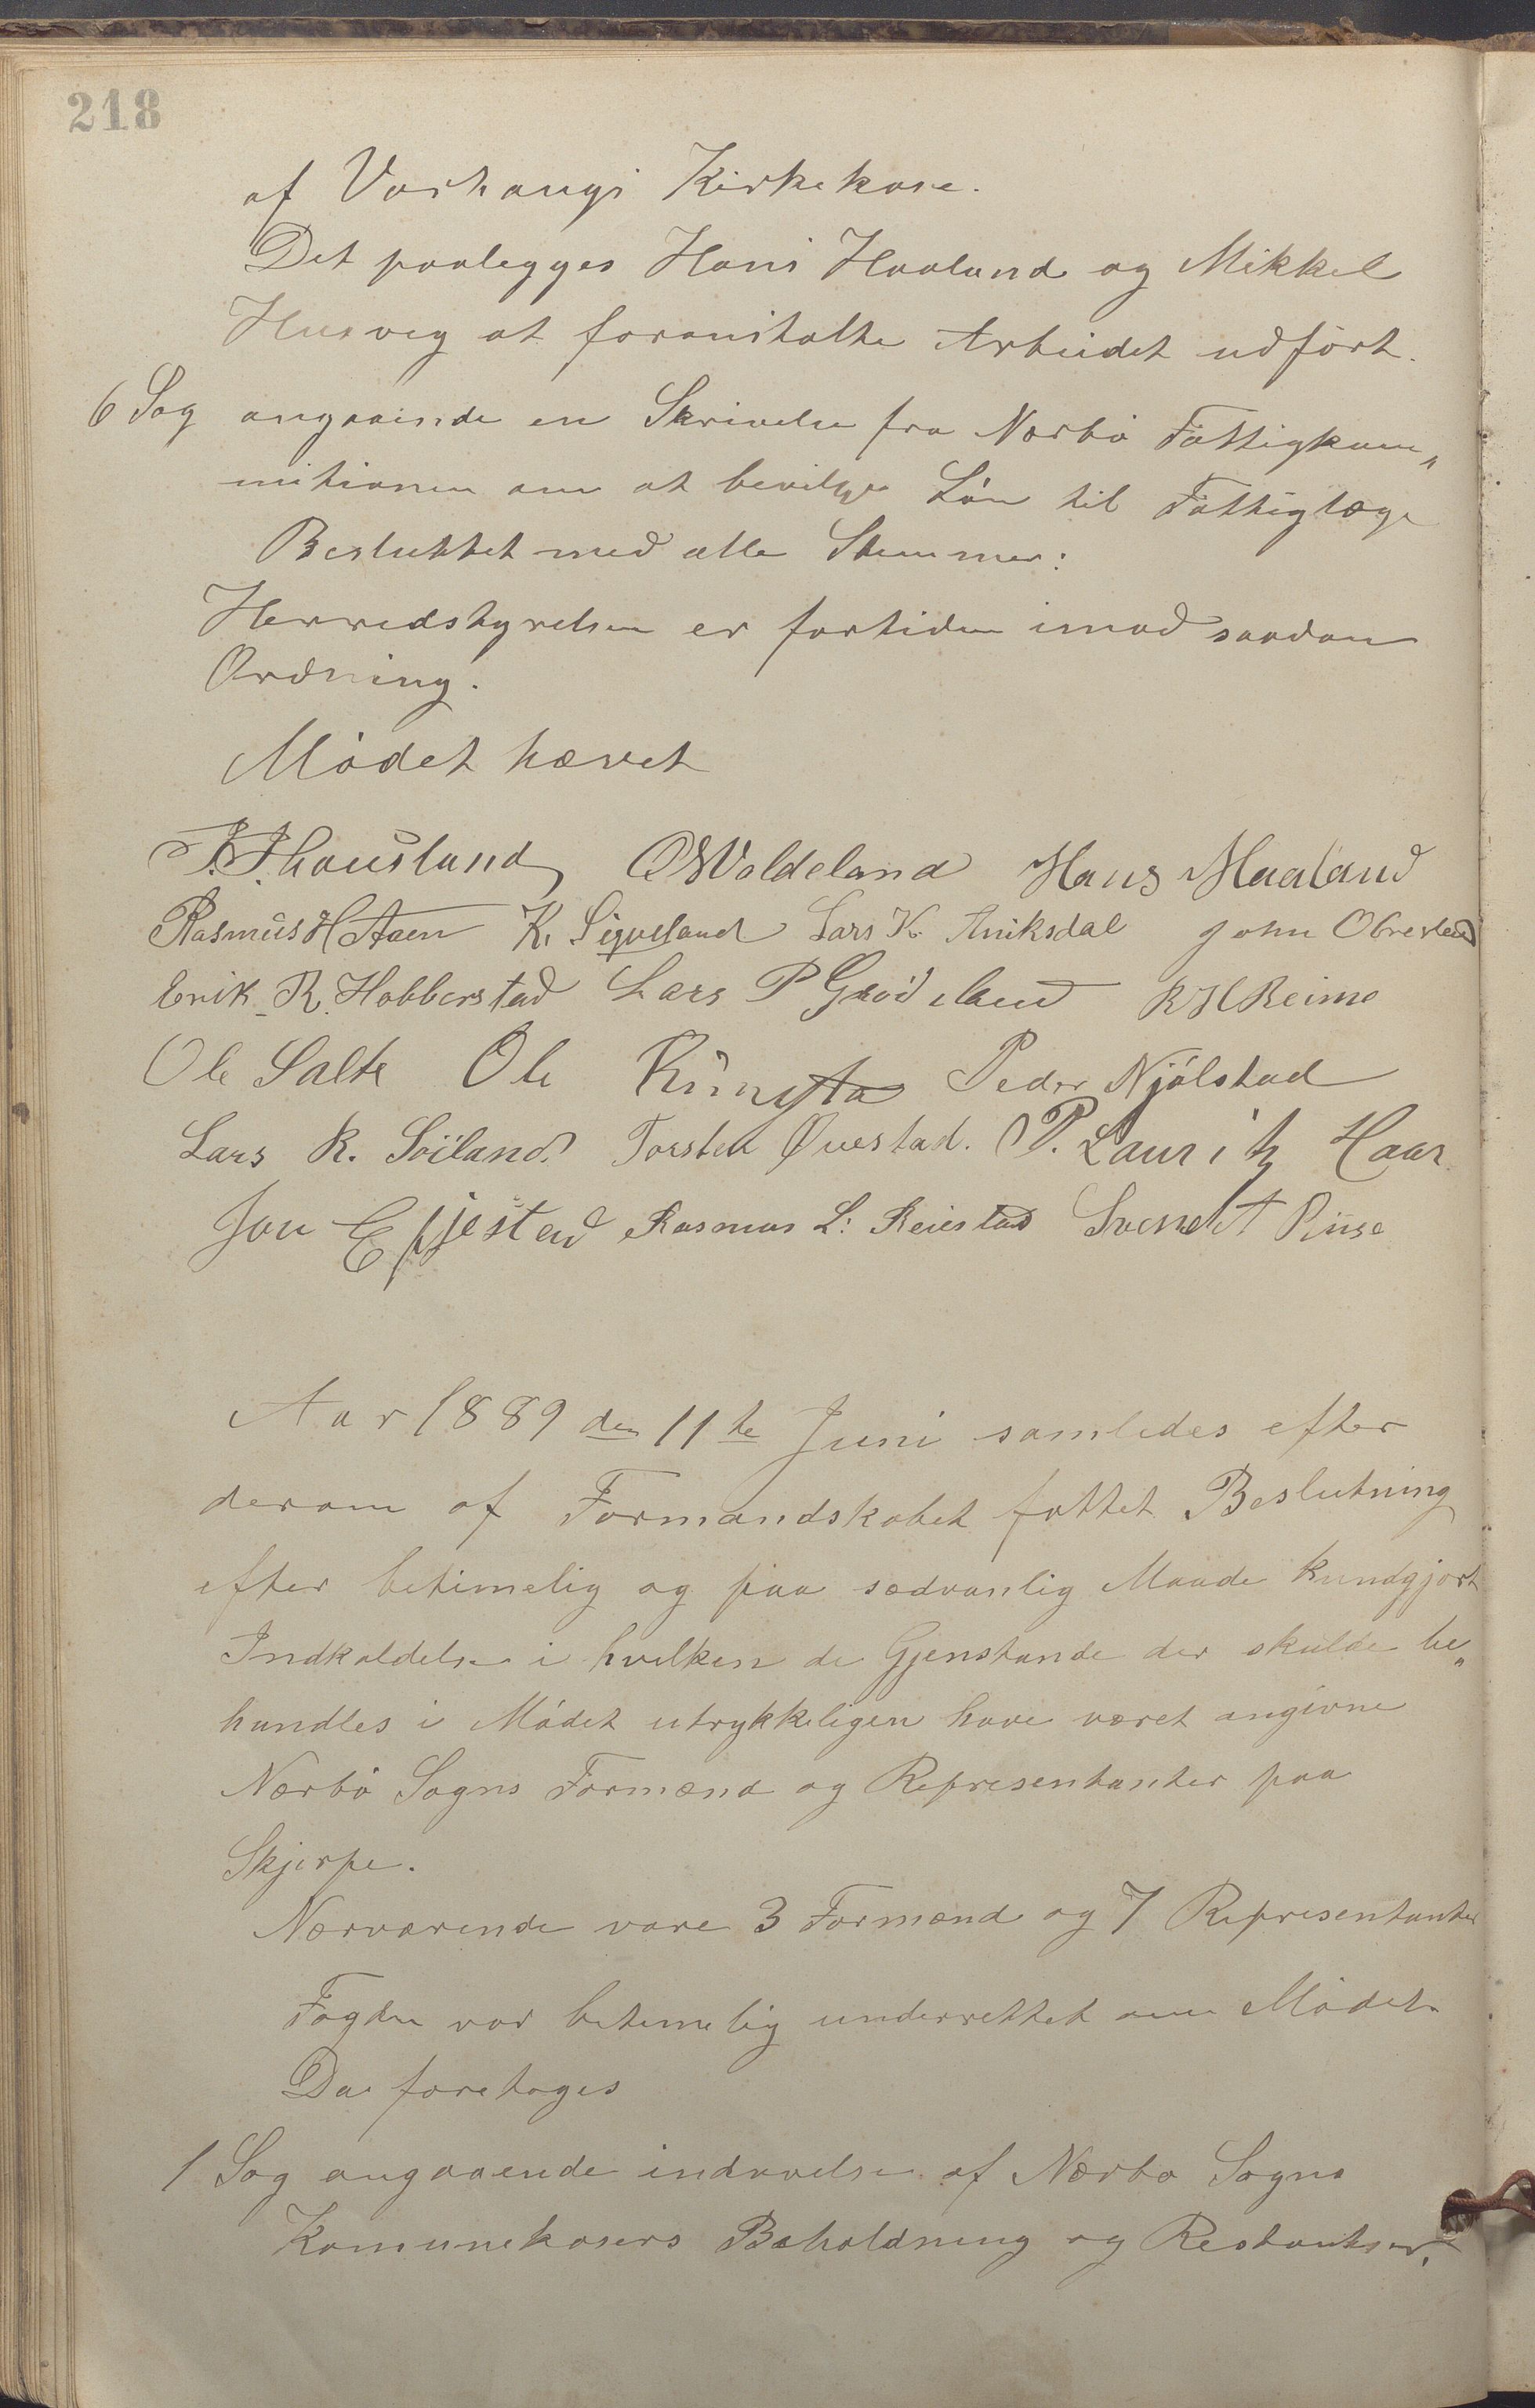 218
af Varhaugs Kirkekase.
Det paalegges Hans Haaland og Mikkel
Husveg at foranstalte Arbeidet udført.
6 Sag angaaende en Skrivelse fra Nærbø Fattigkom„
mitionen om at bevilge Løn til Fattiglæge
Besluttet med alle Stemmer:
Herredstyrelsen er fortiden imod saadan
Ordning.
Mødet hævet
OW Voldeland Hans Haaland
Rasmus H Aaen K. Siqveland Lars K. Aniksdal John Obrestad
Erik R. Hobberstad Lars P Grødeland R H Reime
Ole Salte Ole Ringsta Peder Njølstad
Lars R. Söiland Torsten Øvestad. O P. Lauritz Haar
Jon E Fjestad Rasmus L: Reiestad Svend T Riise
Aar 1889 den 11te Juni samledes efter
derom af Formandskabet fattet Beslutning
efter betimelig og paa sædvanlig Maade kundgjort
Indkaldelse i hvilken de Gjenstande der skulde be„
handles i Mødet utrykkeligen have været angivne
Nærbø Sogns Formænd og Representanter paa
Skjerpe.
Nærværende vare 3 Formænd og 7 Representanter
Fogden var betimelig underrettet om Mødet.
Da foretages
1 Sag angaaende indravelse af Nærbø Sogns
Komunekasers Beholdning og Restantser.